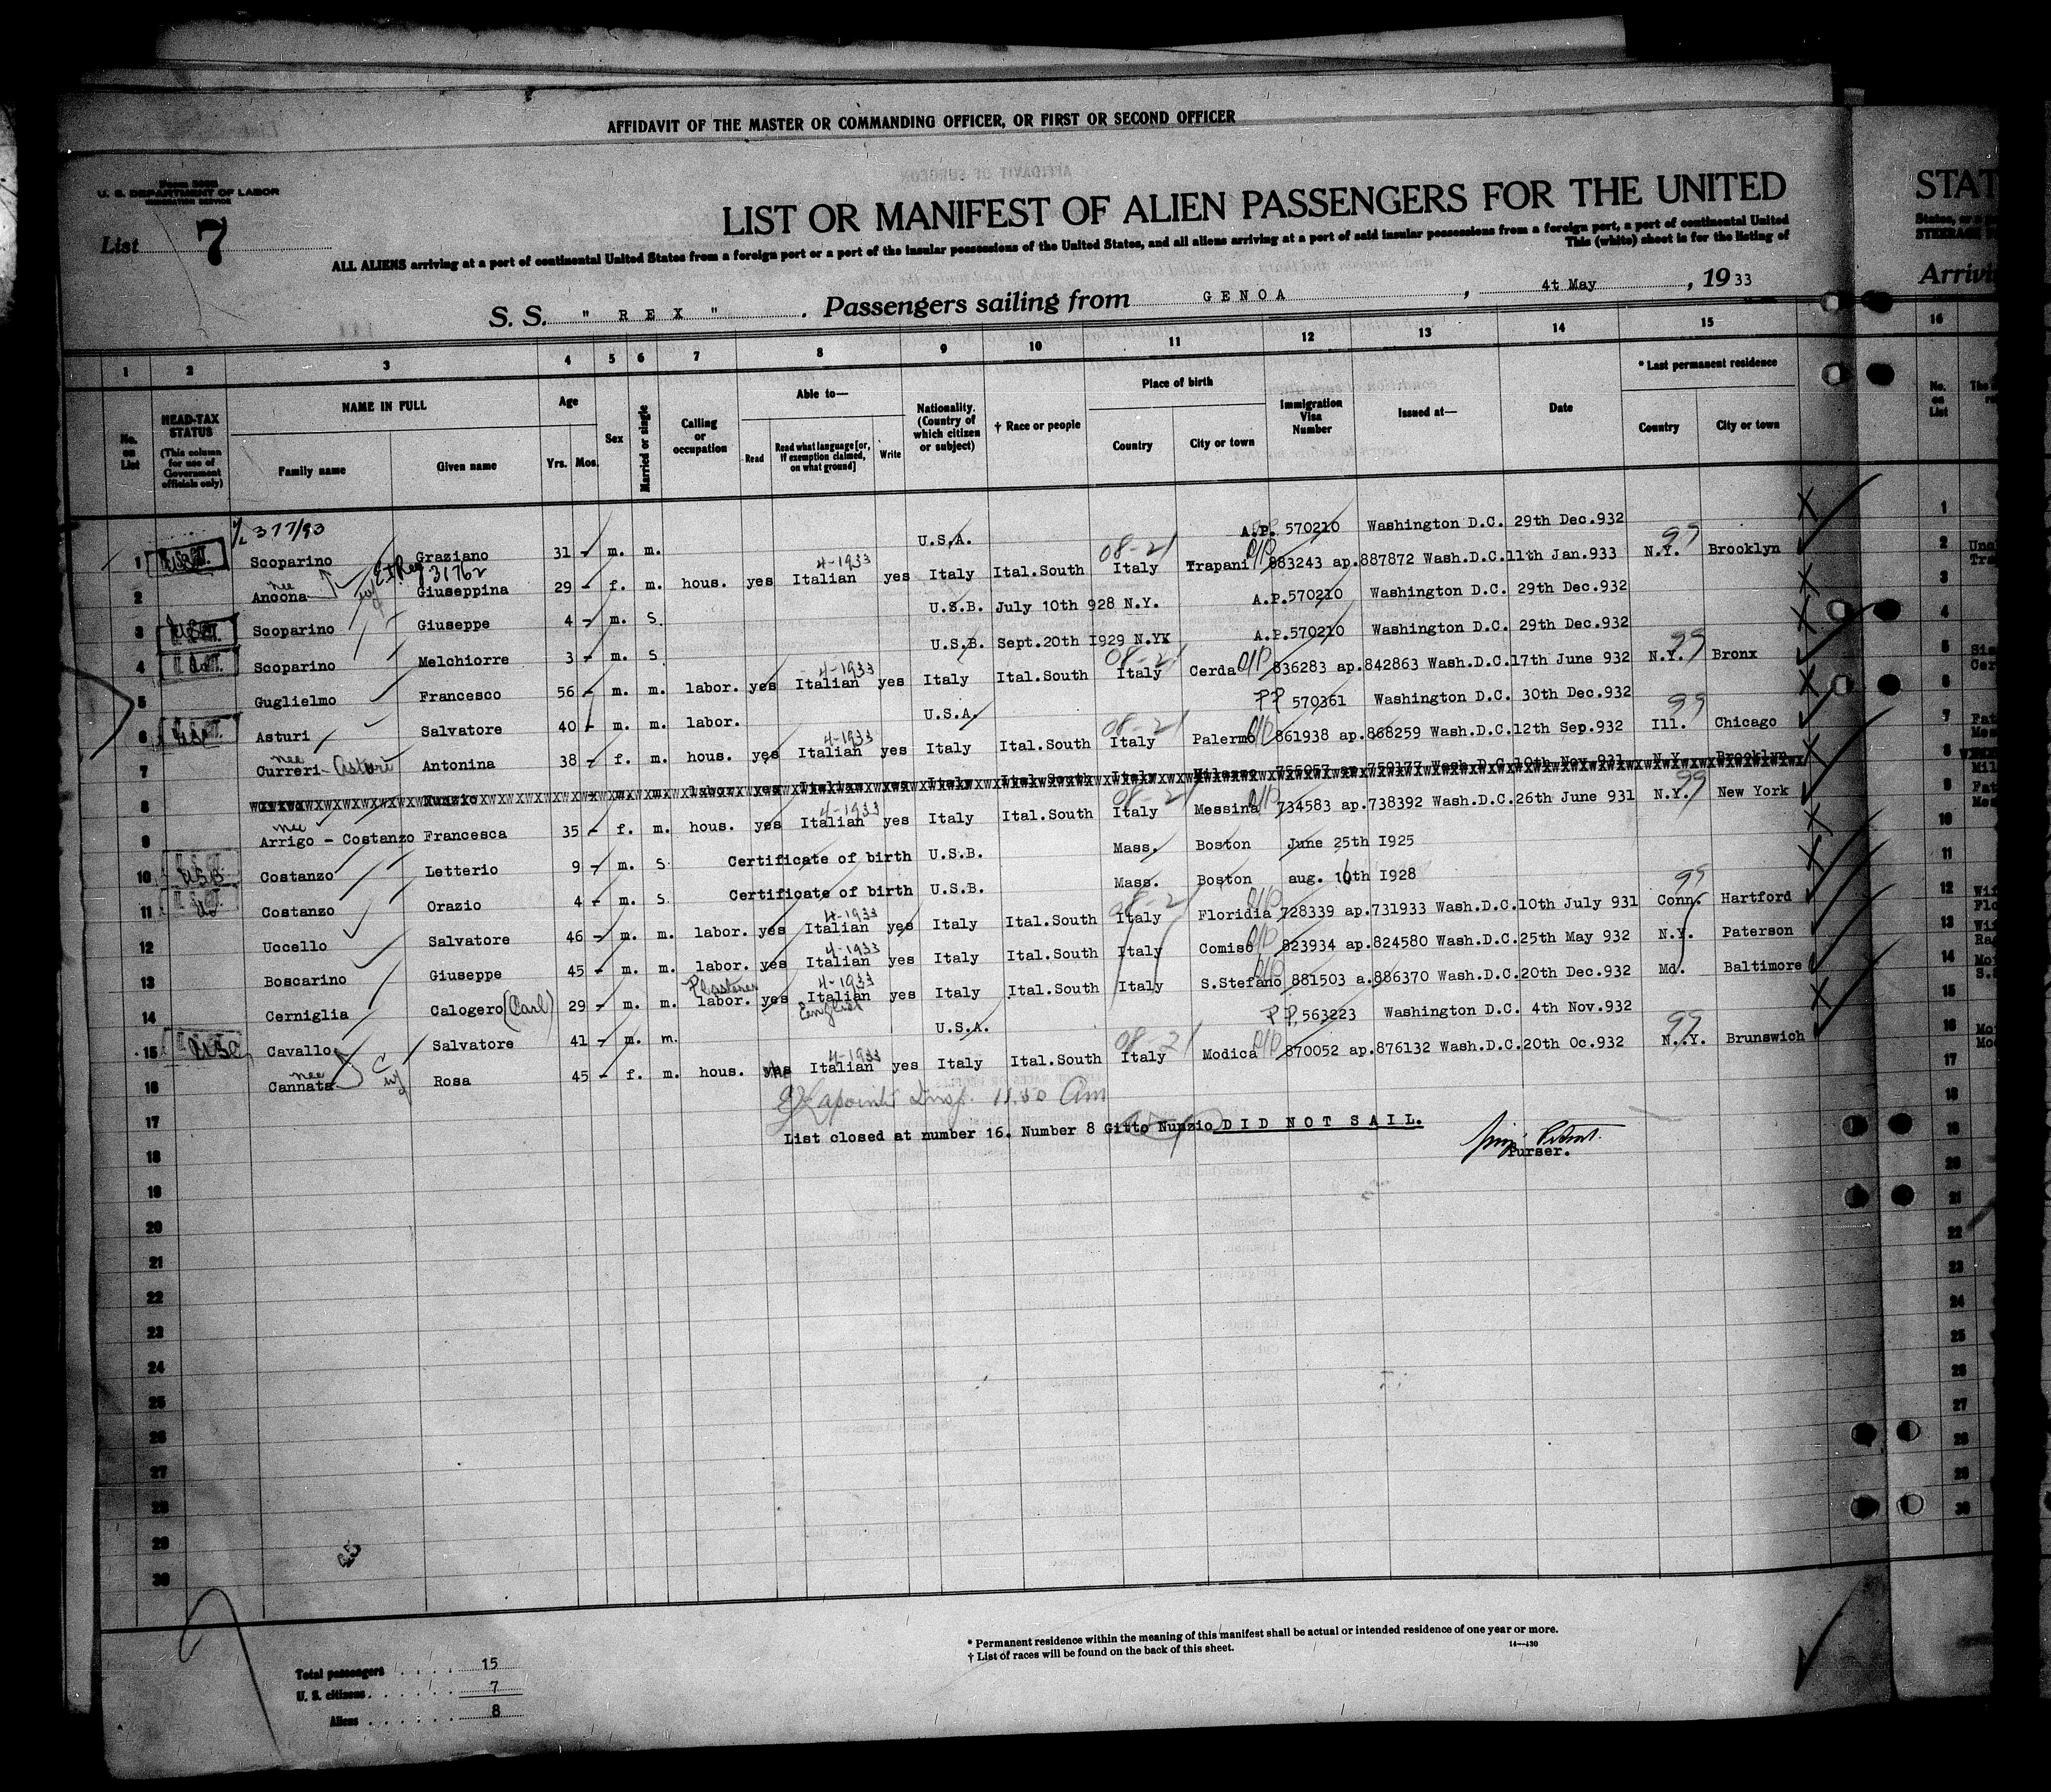 AFFIDAVIT OF THE MASTER OR COMMANDING OFFICER, OR FIRST OR SECOND OFFICER
U. S. DEPARTMENT OF LABOR
List 7
LIST OR MANIFEST OF ALIEN PASSENGERS FOR THE UNITED STAT
ALL ALIENS arriving at a port of continental United States from a foreign port or a port of the insular possessions of the United States, and all aliens arriving at a port of said insular possessions from a foreign port, a port of continental United
This (white) sheet is for the listing of
Arrivi
S. S. " R E X " . Passengers sailing from G E N O A , 4t May , 19 33
1 2 3 4 5 6 7 8 9 10 11 12 13 14 15 16
No. on List
HEAD-TAX STATUS (This column for use of Government officials only)
NAME IN FULL Family name Given name
Age Yrs. Mos.
Sex
Married or single
Calling or occupation
Able to— Read Read what language [or, if exemption claimed, on what ground] Write
Nationality. (Country of which citizen or subject)
† Race or people
Place of birth Country City or town
Immigration Visa Number
Issued at—
Date
* Last permanent residence Country City or town
No. on List
377/93
1 Scoparino Graziano 31 - m. m. U.S.A. A.P. 570210 Washington D.C. 29th Dec.932
Et Reg 31762
2 nee Ancona Giuseppina 29 - f. m. hous. yes Italian 4-1933 yes Italy Ital.South 08-21 Italy Trapani 883243 ap.887872 Wash.D.C. 11th Jan.933 N.Y. 99 Brooklyn
3 Scoparino Giuseppe 4 - m. S. U.S.B. July 10th 928 N.Y. A.P.570210 Washington D.C. 29th Dec.932
4 Scoparino Melchiorre 3 - m. S U.S.B. Sept.20th I929 N.YK A.P.570210 Washington D.C. 29th Dec.932
5 Guglielmo Francesco 56 - m. m. labor. yes Italian 4-1933 yes Italy Ital.South 08-21 Italy Cerda 836283 ap.842863 Wash.D.C.17th June 932 N.Y. 99 Bronx
6 Asturi Salvatore 40 - m. m. labor. U.S.A. PP 570361 Washington D.C. 30th Dec.932
7 nee Curreri - Asturi Antonina 38 - f. m. hous. yes Italian 4-1933 yes Italy Ital.South 08-21 Italy Palermo 861938 ap.868259 Wash.D.C.12th Sep.932 Ill. 99 Chicago
8 Nunzio m. m. labor. yes Italian yes Italy Ital.South Italy 755057 ap.759177 Wash.D.C. 10th Nov.931 N.Y. Brooklyn
9 nee Arrigo - Costanzo Francesca 35 - f. m. hous. yes Italian 4-1933 yes Italy Ital.South 08-21 Italy Messina 734583 ap.738392 Wash.D.C.26th June 931 N.Y. 99 New York
10 Costanzo Letterio 9 - m. S. Certificate of birth U.S.B. Mass. Boston June 25th I925
11 Costanzo Orazio 4 - m. S. Certificate of birth U.S.B. Mass. Boston aug. 10th I928
12 Uccello Salvatore 46 - m. m. labor. yes Italian 4-1933 yes Italy Ital.South 08-21 Italy Floridia 728339 ap.731933 Wash.D.C.10th July 931 Conn. 99 Hartford
13 Boscarino Giuseppe 45 - m. m. labor. yes Italian 4-1933 yes Italy Ital.South Italy Comiso 823934 ap.824580 Wash.D.C.25th May 932 N.Y. Paterson
14 Cerniglia Calogero (Carl) 29 - m. m. Plasterer labor. yes Italian 4-1933 English yes Italy Ital.South Italy S.Stefano 881503 a.886370 Wash.D.C.20th Dec.932 Md. Baltimore
15 Cavallo Salvatore 41 - m. m. U.S.A. P P. 563223 Washington D.C. 4th Nov.932
16 nee Cannata Rosa 45 - f. m. hous. yes Italian 4-1933 yes Italy Ital.South 08-21 Italy Modica 870052 ap.876132 Wash.D.C.20th Oc.932 N.Y. 99 Brunswich
Lapoint Insp. 11.50 Am
17 List closed at number 16. Number 8 Gitto Nunzio D I D N O T S A I L.
Purser.
18
19
20
21
22
23
24
25
26
27
28
29
30
* Permanent residence within the meaning of this manifest shall be actual or intended residence of one year or more.
† List of races will be found on the back of this sheet. 14—430
Total passengers . . . . 15
U. S. citizens . . . . . . 7
Aliens . . . . . . 8